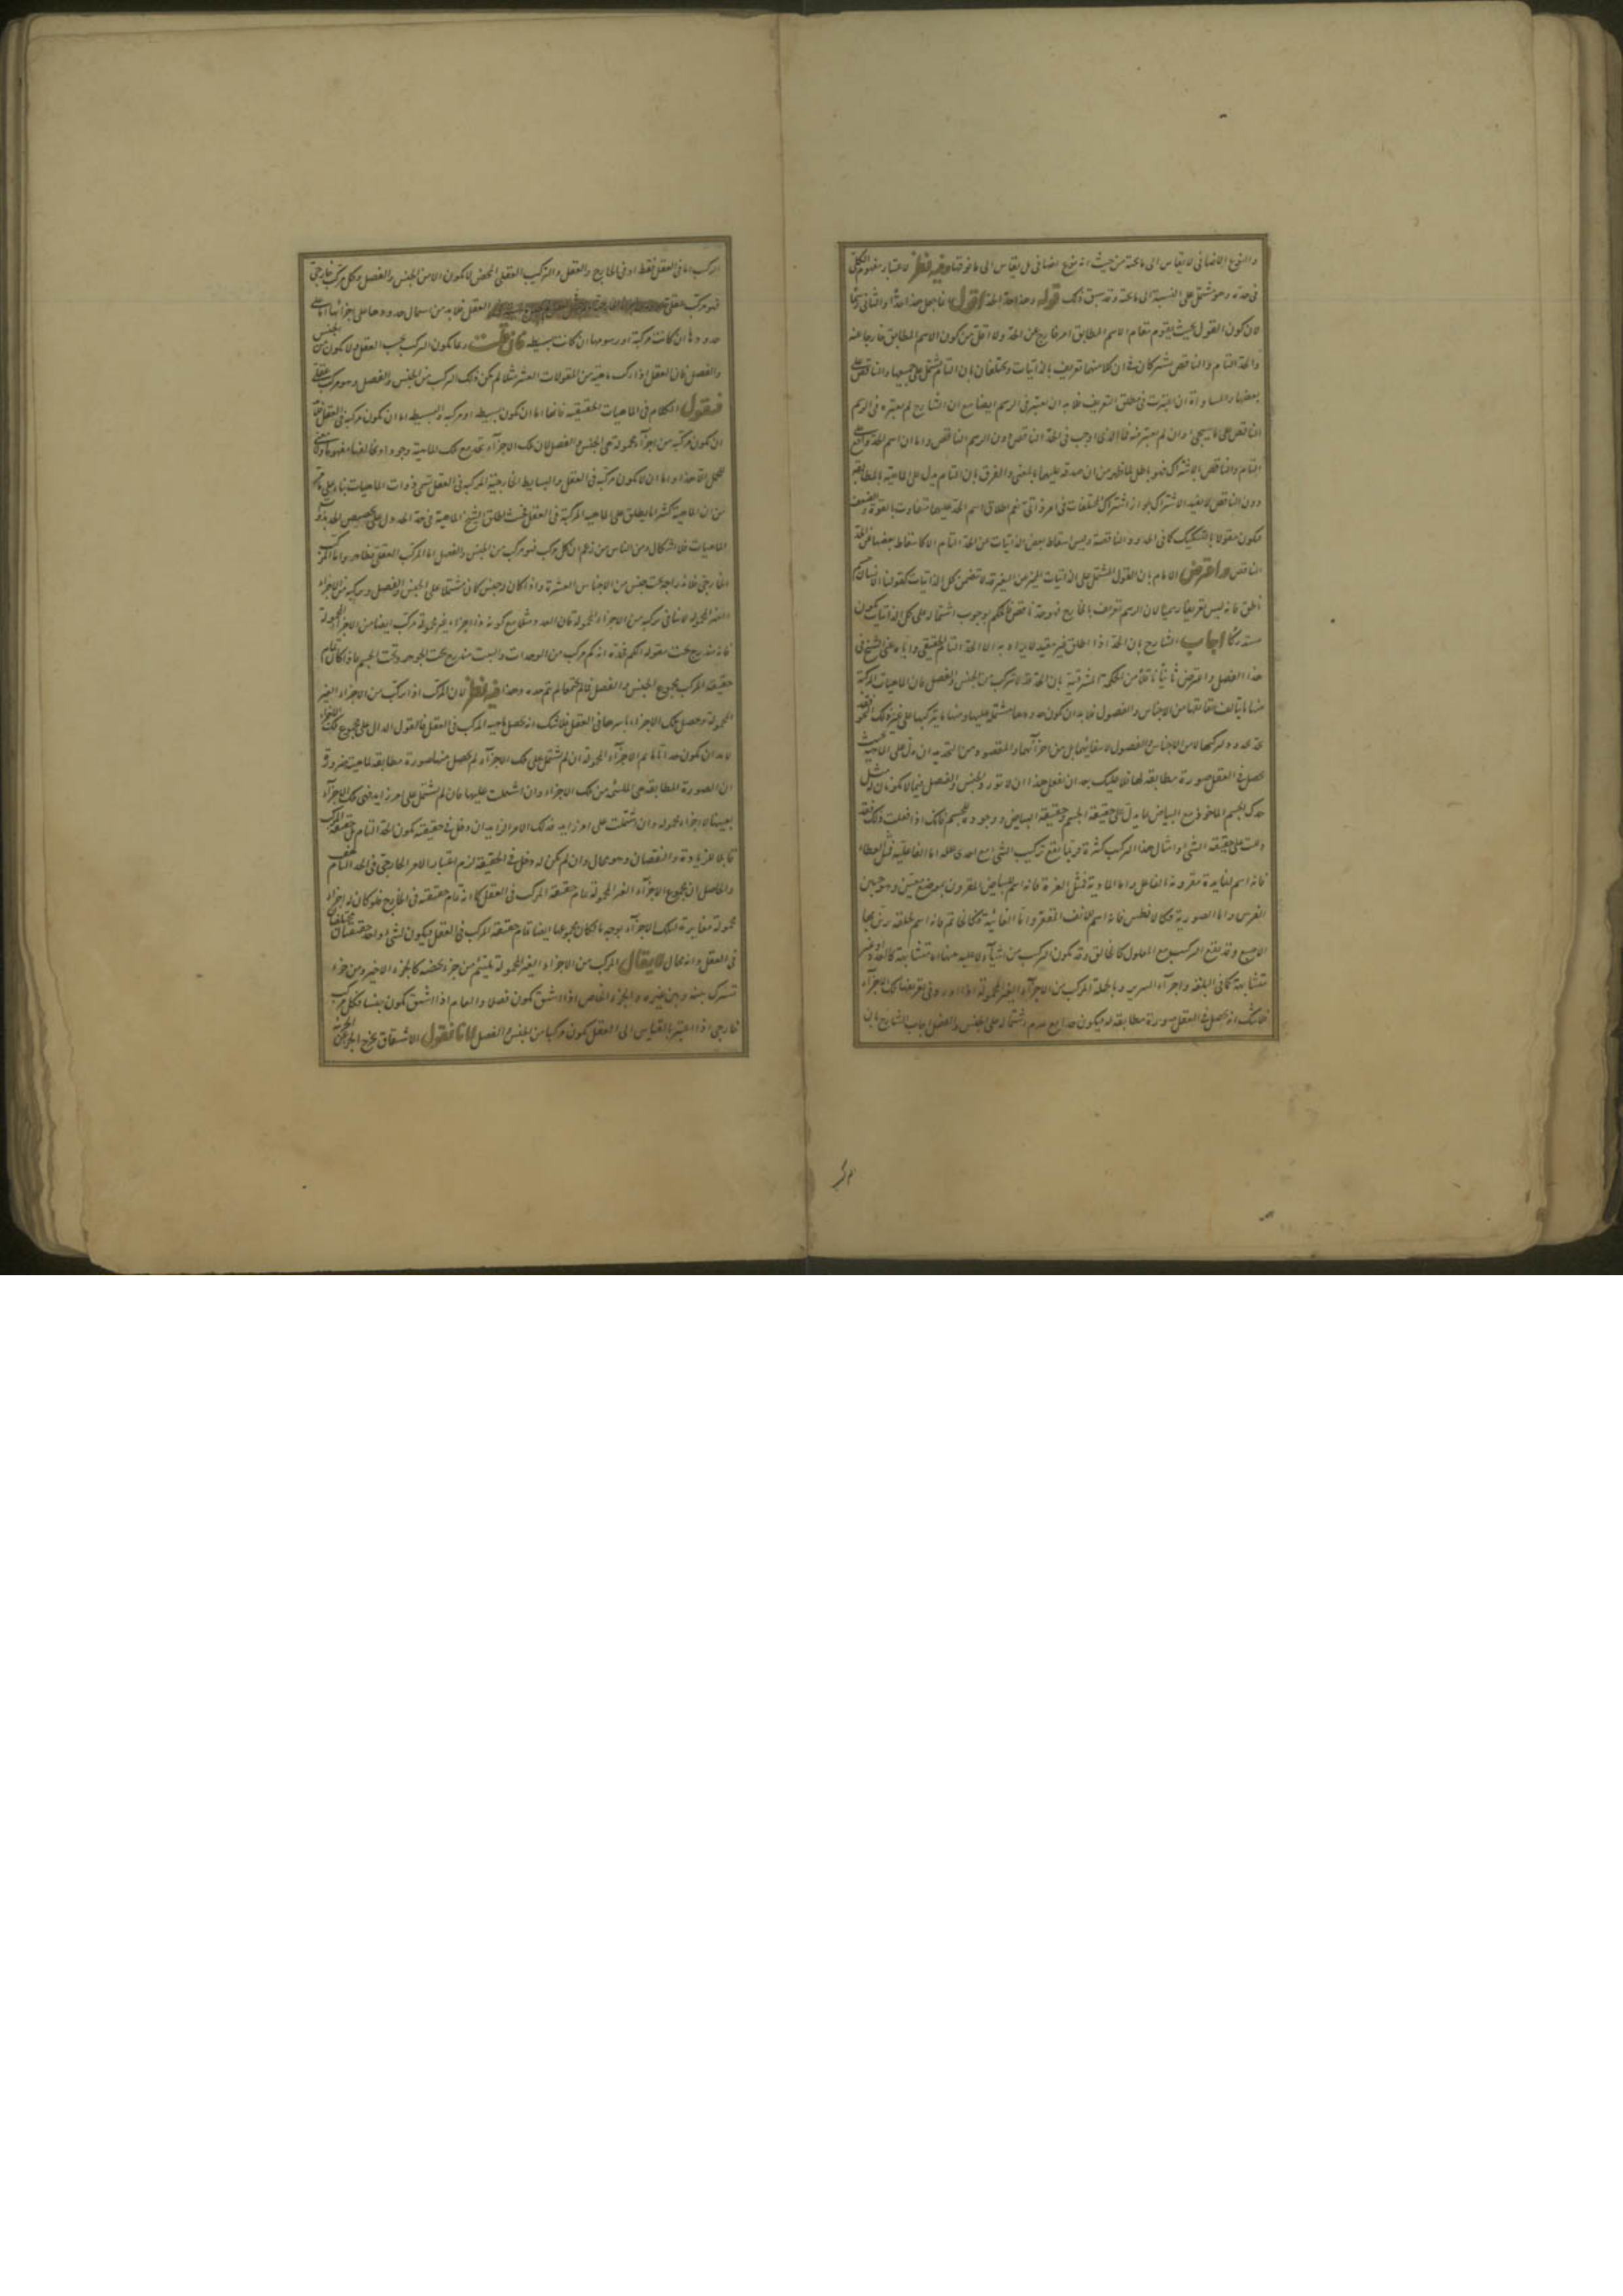 والنوع الاضافى لا يقاس الى ما تحته من حيث انه نوع اضافى بل يقاس الى ما فوقها وفيه نظر لاعتبار مفهوم الكلى
فى حده وهو مشتمل على النسبة الى ما تحته وقد سبق ذلك قوله وهذا حد الحد اقول انما جعل هذا حدا
لان كون القول بحيث يقوم مقام الاسم المطابق امر خارج عن الحد ولا اقل من كون الاسم المطابق خارجا عنه
والحد التام والناقص يشتركان فى ان كلا منهما تعريف بالذاتيات ويختلفان بان التام مشتمل على جميعها والناقص على
بعضها والمساواة ان اعتبرت فى مطلق التعريف فلا بد ان يعتبر فى الرسم ايضا مع ان الشارح لم يعتبره فى الرسم
الناقص على ما سيجئ وان لم يعتبر فيه فما الذى اوجب فى الحد الناقص دون الرسم الناقص واما ان اسم الحد واقع على
التام والناقص بالاشتراك فهو باطل لما ظهر من ان صدقه عليهما بالمعنى والفرق بان التام يدل على الماهية بالمطابقة
دون الناقص لا يفيد الاشتراك لجواز اشتراك المختلفات فى امر ذاتى نعم اطلاق اسم الحد عليهما متفاوت بالقوة والضعف
فيكون مقولا بالتشكيك كما فى الحدود الناقصة وليس اسقاط بعض الذاتيات عن الحد التام الا كاسقاط بعضها عن الحد
الناقص واعترض الامام بان القول المشتمل على الذاتيات المميز عن الغير قد لا يتضمن كل الذاتيات كقولنا الانسان جسم
ناطق فانه ليس تعريفا رسميا لان الرسم تعريف بالخارج فهو حد ناقص فالحكم بوجوب اشتماله على كل الذاتيات يكون
مستدركا اجاب الشارح بان الحد اذا اطلق غير مقيد لا يراد به الا الحد التام الحقيقى واياه عنى الشيخ فى
هذا الفصل واعترض ثانيا ناقلا من الحكمة المشرقية بان الحد قد لا يتركب من الجنس والفصل فان الماهيات المركبة
منها ما يتألف حقائقها من الاجناس والفصول فلا بد ان يكون حدودها مشتملة عليها ومنها ما يتركبها على غير ذلك النحو
حصل فى العقل صورة مطابقة لها فلا عليك بعد ان تفعل هذا ان لا تورد الجنس والفصل فيما لا يكونان له مثل
حدك الجسم الماخوذ مع البياض بما يدل على حقيقة الجسم وحقيقة البياض ووجوده للجسم فانك اذا فعلت ذلك فقد
دللت على حقيقة الشئ وامثال هذا التركيب كثيرة فربما يقع تركيب الشئ مع احدى علله اما الفاعلية فمثل العطاء
فانه اسم لفايدة مقرونة بالفاعل واما المادية فمثل الغرة فانه اسم للبياض المقرون بموضع معين وهو جبين
الفرس واما الصورية فكالافطس فانه اسم الانف المتقعر واما الغائية فكالخاتم فانه اسم لحلقة يزين بها
الاصبع وقد يقع التركيب مع المعلول كالخالق وقد يكون التركيب من اشياء لا علية بينها اما متشابهة كالعدد او غير
متشابهة كما فى البلقة واجزاء السرير وبالجملة المركب من الاجزاء الغير المحمولة اذا اورد فى تعريفه تلك الاجزاء
فلا شك انه يحصل فى العقل صورة مطابقة له فيكون حدا مع عدم اشتماله على الجنس والفصل اجاب الشارح بان
المركب اما فى العقل فقط او فى الخارج والعقل والتركيب العقلى المحض لا يكون الا من الجنس والفصل وكل مركب خارجى
فهو مركب عقلى العقل فلا بد من اشتمال حدودها على اجزائها اما على
حدودها ان كانت مركبة او رسومها ان كانت بسيطة فان قلت ربما يكون التركيب بحسب العقل ولا يكون من الجنس
والفصل فان العقل اذا ركب ماهية من المقولات العشر مثلا لم يكن ذلك التركيب من الجنس والفصل وهو مركب عقلى
فنقول الكلام فى الماهيات الحقيقية فانها اما ان يكون بسيطة او مركبة والبسيطة اما ان يكون مركبة فى العقل
ان يكون مركبة من اجزاء محمولة هى الجنس والفصل لان تلك الاجزاء تتحد مع تلك الماهية وجودا وتخالفها مفهوما ولا معنى
للحمل الا هذا واما ان لا يكون مركبة فى العقل والبسايط الخارجية المركبة فى العقل تسمى ذوات الماهيات بناء على ما مر
من ان الماهية كثيرا ما يطلق على الماهية المركبة فى العقل فحيث اطلق الشيخ الماهية فى حد الحد دل على تخصيص الحد بذوات
الماهيات فلا اشكال ومن الناس من زعم ان كل مركب فهو مركب من الجنس والفصل اما المركب العقلى فظاهر واما المركب
الخارجى فلاندراجه تحت جنس من الاجناس العشرة واذا كان له جنس كان مشتملا على الجنس والفصل وتركبه من الاجزاء
الغير المحمولة لا ينافى تركبه من الاجزاء المحمولة فان العدد مثلا مع كونه ذا اجزاء غير محمولة مركب ايضا من الاجزاء المحمولة
فانه مندرج تحت مقولة الكم فحده انه كم مركب من الوحدات والبيت مندرج تحت الجوهر وتحت الجسم فاذا كان تمام
حقيقة المركب مجموع الجنس والفصل فما لم يجتمعا لم يتم حده وهذا فيه نظر لان المركب اذا ركب من الاجزاء الغير
المحمولة وحصل تلك الاجزاء باسرها فى العقل فلا شك انه يحصل ماهية المركب فى العقل فالقول الدال على مجموع تلك الاجزاء
لا بد ان يكون حدا تاما ثم الاجزاء المحمولة ان لم تشتمل على تلك الاجزاء لم يحصل منها صورة مطابقة للماهية ضرورة
ان الصورة المطابقة هى الملتئمة من تلك الاجزاء وان اشتملت عليها فان لم تشتمل على امر زايد فهى تلك الاجزاء
بعينها لا اجزاء محمولة وان اشتملت على امر زايد فذلك الامر الزايد ان دخل فى حقيقته يكون الحد التام بل حقيقة المركب
قابلا للزيادة والنقصان وهو محال وان لم يكن له دخل فى الحقيقة لزم اعتبار الامر الخارجى فى الحد التام
والحاصل ان مجموع الاجزاء الغير المحمولة تمام حقيقة المركب فى العقل كما انه تمام حقيقته فى الخارج فلو كان له اجزاء
محمولة مغايرة لتلك الاجزاء بوجه ما لكان مجموعها ايضا تمام حقيقة المركب فى العقل فيكون لشئ واحد حقيقتان مختلفتان
فى العقل وانه محال لا يقال المركب من الاجزاء الغير المحمولة يلتئم من جزء يخصه كالجزء الاخير ومن جزء
مشترك بينه وبين غيره والجزء الخاص اذا اشتق يكون فصلا والعام اذا اشتق يكون جنسا فكل مركب
خارجى اذا اعتبر بالقياس الى العقل يكون مركبا من الجنس والفصل لانا نقول الاشتقاق يخرج الجزء عن الجزئية